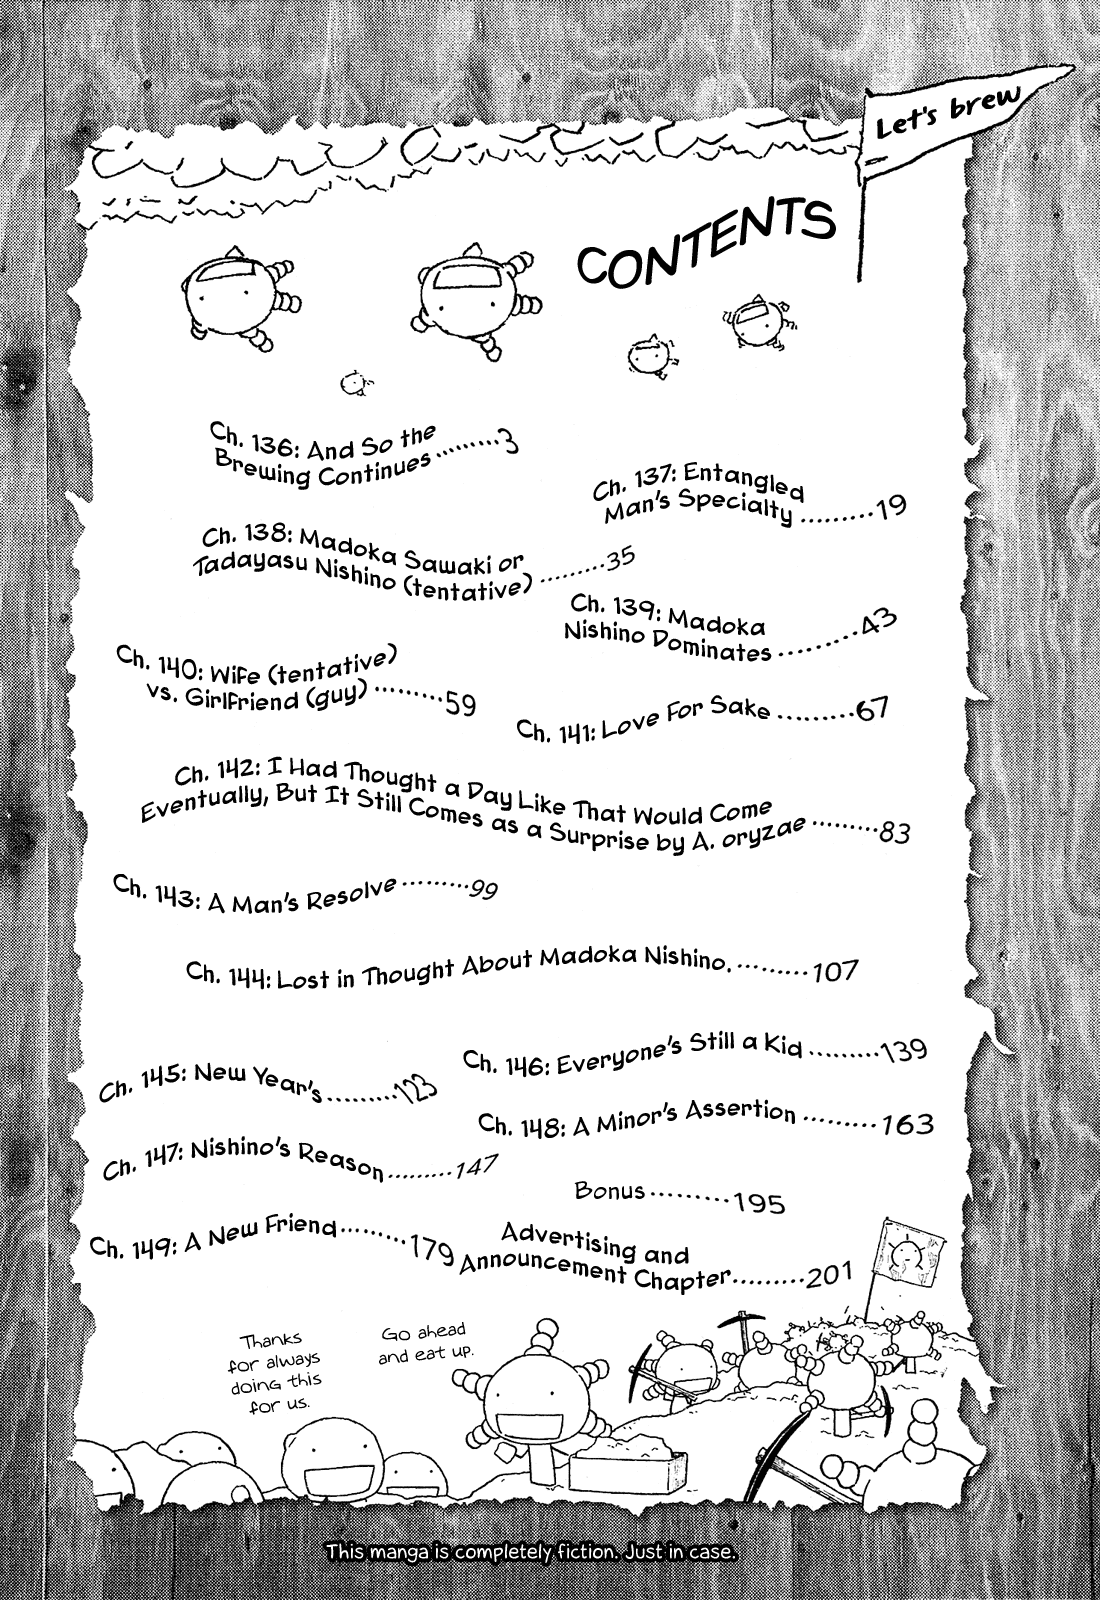 Let's brew
CONTENTS
Ch. 136: And So the
Brewing Continues.........3
Ch. 137: Entangled
Man's Specialty.........19
Ch. 138: Madoka Sawaki or
Tadayasu Nishino (tentative).........35
Ch. 139: Madoka
Nishino Dominates.........43
Ch. 140: Wife (tentative)
vs. Girlfriend (guy).........59
Ch. 141: Love For Sake.........67
Ch. 142: I Had Thought a Day Like That Would Come
Eventually, But It Still Comes as a Surprise by A. oryzae.........83
Ch. 143: A Man's Resolve.........99
Ch. 144: Lost in Thought About Madoka Nishino..........107
Ch. 145: New Year's.........123
Ch. 146: Everyone's Still a Kid.........139
Ch. 147: Nishino's Reason.........147
Ch. 148: A Minor's Assertion.........163
Ch. 149: A New Friend.........179
Bonus.........195
Advertising and
Announcement Chapter.........201
Thanks
for always
doing this
for us.
Go ahead
and eat up.
This manga is completely fiction. Just in case.